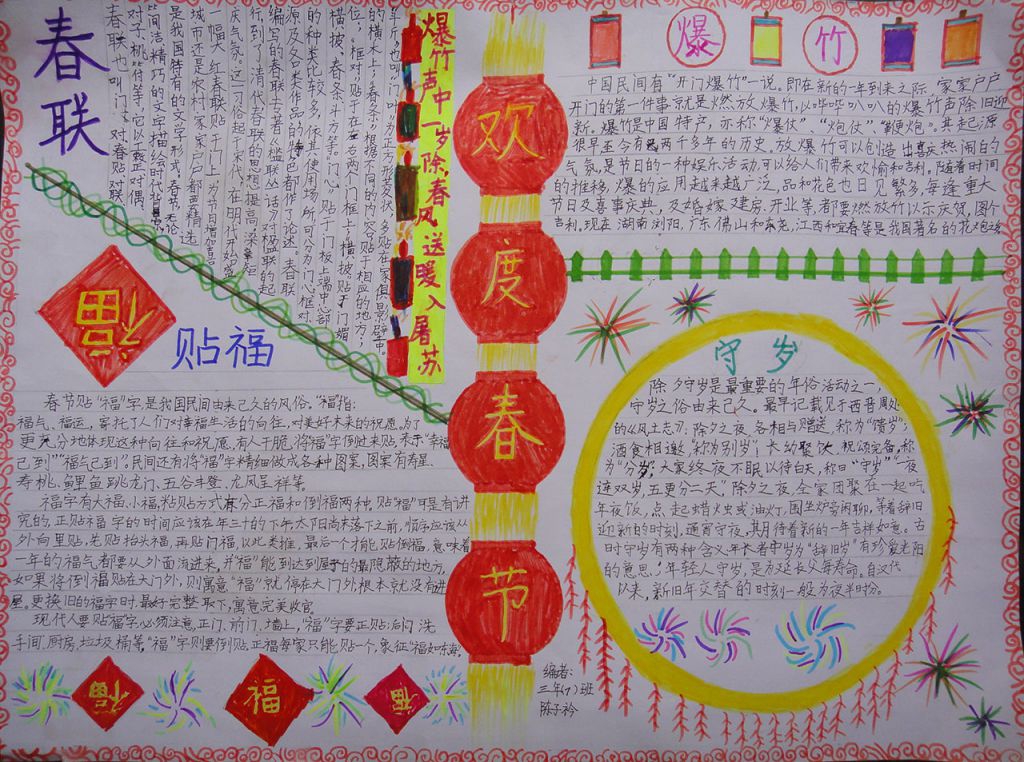 春联
年斤”也叫“门叶”，为正方形菱状，多贴在家俱、影壁中。
的横木上；“春条”根据不同的内容贴于相应的地方；
位；“框对”贴于左右两个门框上；“横披”贴于门楣
横披、春条、斗方等。“门心”贴于门板上端中心部
的种类比较多，依其使用场所，可分为门心、框对、
源及各类作品的特色都作了论述。春联
编写的春联专著《楹联丛话》对楹联的起
行，到了清代，春联的思想
庆气氛。这一习俗起于宋代，在明代开始盛
一幅大红春联贴于门上，为节日增加喜
城市还是农村，家家户户都要精选
是我国特有的文学形式，春节，无论
简洁、精巧的文字描绘时代背景，
对子、桃符等，它以工整、对偶、
春联也叫门对、春贴、对联、
爆竹声中一岁除，春风送暖入屠苏
欢度春节
爆竹
中国民间有“开门爆竹”一说。即在新的一年到来之际，家家户户
开门的第一件事就是燃放爆竹，以哔哔叭叭的爆竹声除旧迎
新。爆竹是中国特产，亦称“爆仗”、“炮仗”、“鞭炮”。其起源
很早，至今有两千多年的历史，放爆竹可以创造出喜庆热闹的
气氛，是节日的一种娱乐活动，可以给人们带来欢愉和吉利，随着时间
的推移，爆的应用越来越广泛，品和花色也日见繁多，每逢重大
节日及喜事庆典，及婚嫁、建房、开业等，都要燃放竹以示庆贺，图个
吉利，现在，湖南浏阳，广东佛山和东尧，江西和宜春等是我国著名的花炮之
福
贴福
春节贴“福”字，是我国民间由来已久的风俗。“福指
福气、福运，寄托了人们对幸福生活的向往，对美好未来的祝愿。为了
更充分地体现这种向往和祝愿，有人干脆将“福”字倒过来贴，表示“幸福
已到”“福气已到”。民间还有将“福”字精细做成各种图案，图案有寿星、
寿桃、鲤鱼跳龙门、五谷丰登、龙凤呈祥等。
福字有大福、小福，粘贴方式有分正福和倒福两种，贴“福”可是有讲
究的，正贴福字的时间应该在年三十的下午太阳尚未落下之前，顺序应该从
外向里贴，先贴抬头福，再贴门福，以此类推，最后一个才能贴倒福，意味着
一年的福气都要从外面流进来，并“福”能到达到屋子的最隐蔽的地方，
如果将倒福贴在大门外，则寓意“福”就停在大门外根本就没有进
屋。更换旧的福字时，最好完整取下，寓意完美收官。
现代人要贴福字必须注意，正门、前门、墙上，“福”字要正贴；后门、洗
手间、厨房、垃圾桶等，“福”字则要倒贴，正福每家只能贴一个，象征“福如东海”
福
福
福
守岁
除夕守岁是最重要的年俗活动之一，
守岁之俗由来已久。最早记载见于西晋周处
的《风土志》：除夕之夜，各相与赠送，称为“馈岁”；
酒食相邀，“称为别岁”；长幼聚饮，祝颂完备，称
为“分岁”；大家终夜不眠，以待白天，称曰“守岁”“一夜
连双岁，五更分二天”，除夕之夜，全家团聚在一起，吃
年夜饭，点起蜡烛或油灯，围坐炉旁闲聊，等着辞旧
迎新的时刻，通宵守夜，其期待着新的一年吉祥如意。古
时守岁有两种含义，年长者守岁为“辞旧岁”，有珍爱光阴
的意思；年轻人守岁，是为延长父母寿命。自汉代
以来，新旧年交替的时刻一般为夜半时分。
编者：
三年(1)班
陈子衿